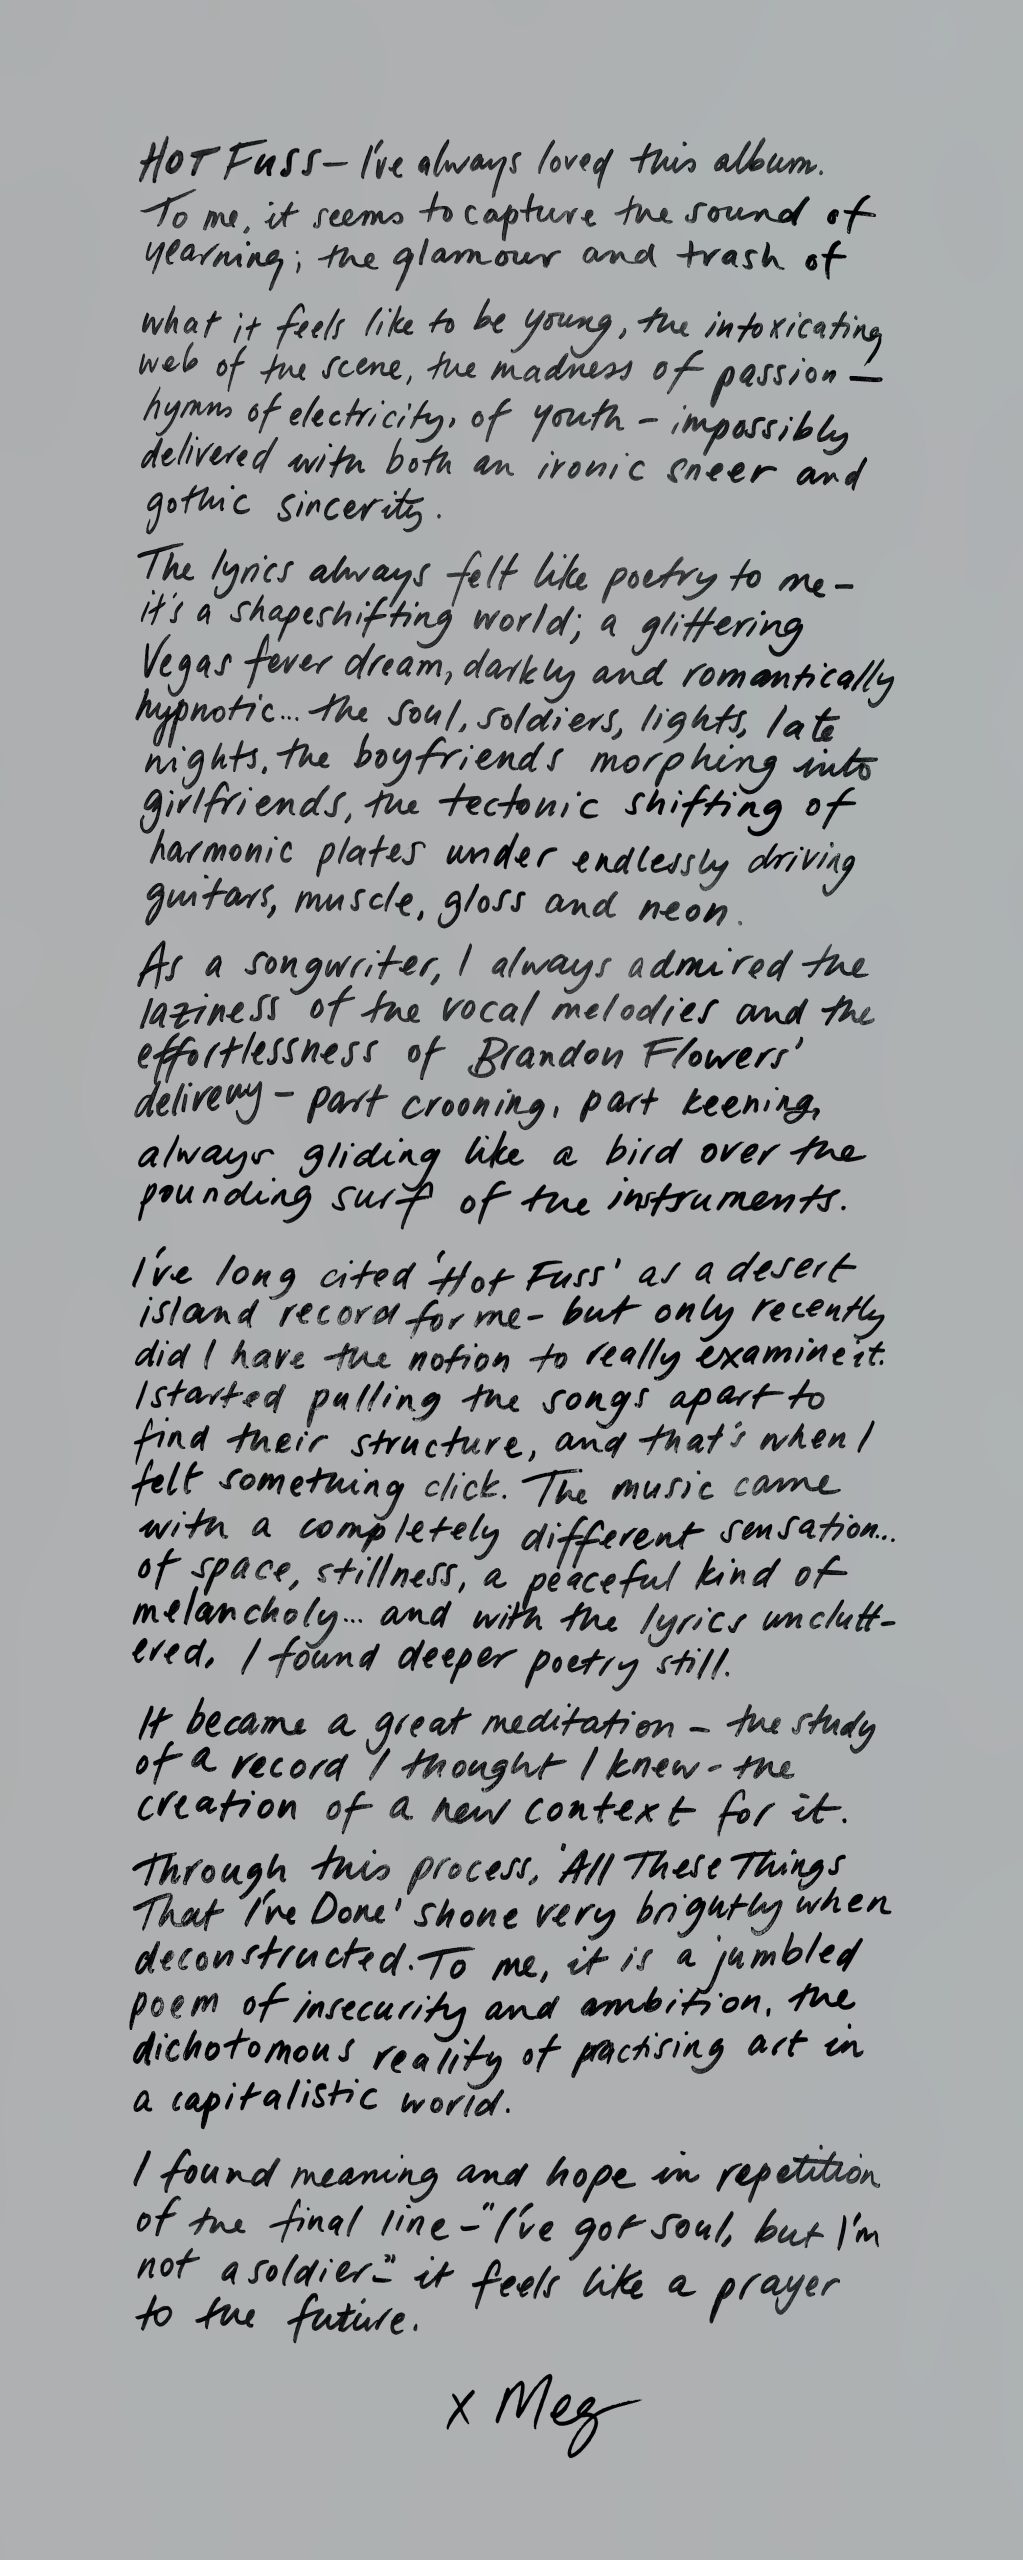 HOT FUSS – I've always loved this album.
To me, it seems to capture the sound of
yearning; the glamour and trash of
what it feels like to be young, the intoxicating
web of the scene, the madness of passion –
hymns of electricity, of youth – impossibly
delivered with both an ironic sneer and
gothic sincerity.
The lyrics always felt like poetry to me –
it's a shapeshifting world; a glittering
Vegas fever dream, darkly and romantically
hypnotic... the soul, soldiers, lights, late
nights, the boyfriends morphing into
girlfriends, the tectonic shifting of
harmonic plates under endlessly driving
guitars, muscle, gloss and neon.
As a songwriter, I always admired the
laziness of the vocal melodies and the
effortlessness of Brandon Flowers'
delivery – part crooning, part keening,
always gliding like a bird over the
pounding surf of the instruments.
I've long cited 'Hot Fuss' as a desert
island record for me – but only recently
did I have the notion to really examine it.
I started pulling the songs apart to
find their structure, and that's when I
felt something click. The music came
with a completely different sensation...
of space, stillness, a peaceful kind of
melancholy... and with the lyrics unclutt-
ered, I found deeper poetry still.
It became a great meditation – the study
of a record I thought I knew - the
creation of a new context for it.
Through this process, 'All These Things
That I've Done' shone very brightly when
deconstructed. To me, it is a jumbled
poem of insecurity and ambition, the
dichotomous reality of practising art in
a capitalistic world.
I found meaning and hope in repetition
of the final line – "I've got soul, but I'm
not a soldier" – it feels like a prayer
to the future.
x Meg